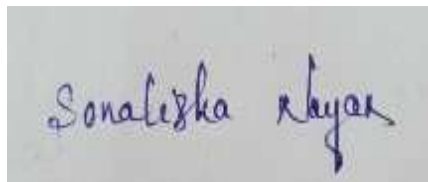 Sonalizka Nayak